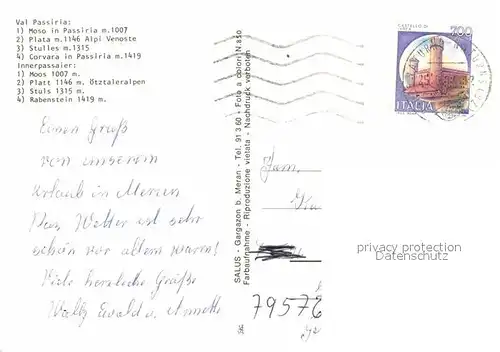 Val Passiria:
1) Moso in Passiria m.1007
2) Plata m.1146 Alpi Venoste
3) Stulles m.1315
4) Corvara in Passiria m.1419
Innerpassaier:
1) Moos 1007 m.
2) Platt 1146 m. Ötztaleralpen
3) Stuls 1315 m.
4) Rabenstein 1419 m.
Einen Gruß
von unserem
Urlaub in Meran
Das Wetter ist sehr
schön vor allem warm!
Viele herzliche Grüße
Ewald u. Annette
SALUS - Gargazon b. Meran - Tel. 91 3 60 - Foto a colori N.
Farbaufnahme - Riproduzione vietata - Nachdruck verboten
CASTELLO DI
700
ITALIA
Fam.
privacy protection
Datenschutz
7957